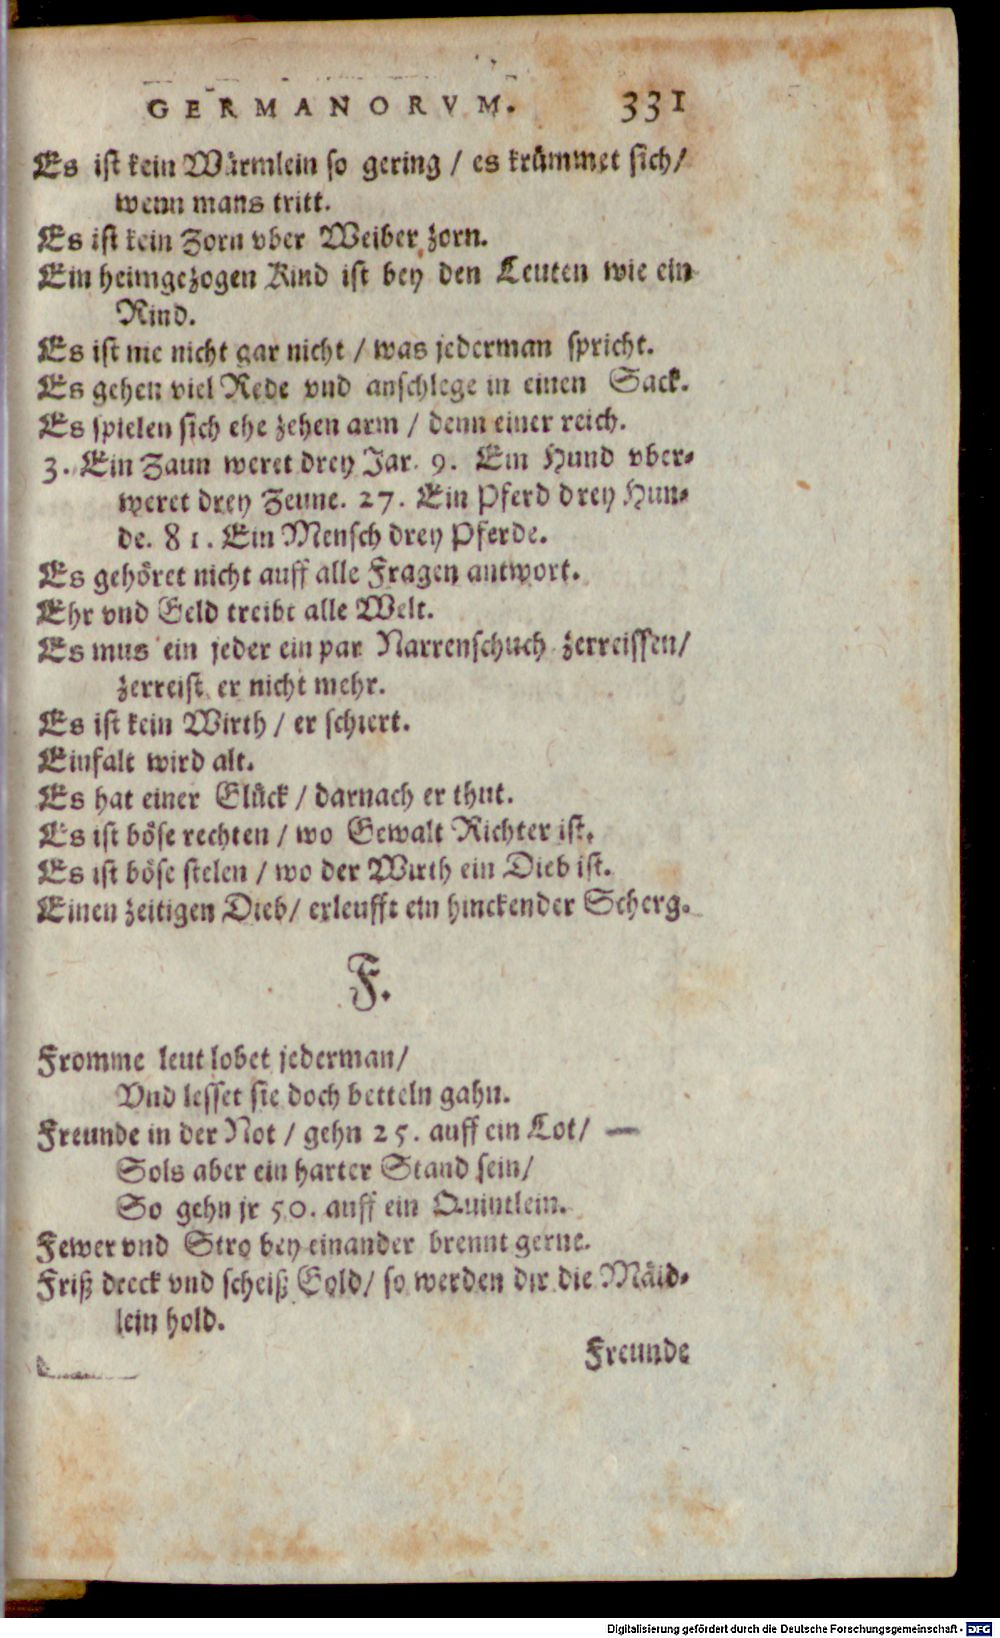 GERMANORVM. 331
Es ist kein Würmlein so gering / es krümmet sich/
wenn mans tritt.
Es ist kein Zorn vber Weiber zorn.
Ein heimgezogen Kind ist bey den Leuten wie ein
Rind.
Es ist nie nicht gar nicht / was jederman spricht.
Es gehen viel Rede vnd anschlege in einen Sack.
Es spielen sich ehe zehen arm / denn einer reich.
3. Ein Zaun weret drey Jar. 9. Ein Hund vber-
weret drey Zeune. 27. Ein Pferd drey Hun-
de. 81. Ein Mensch drey Pferde.
Es gehöret nicht auff alle Fragen antwort.
Ehr vnd Geld treibt alle Welt.
Es mus ein jeder ein par Narrenschuch zerreissen/
zerreist er nicht mehr.
Es ist kein Wirth / er schiert.
Einfalt wird alt.
Es hat einer Glück / darnach er thut.
Es ist böse rechten / wo Gewalt Richter ist.
Es ist böse stelen / wo der Wirth ein Dieb ist.
Einen zeitigen Dieb/ erleufft ein hinckender Scherg.
F.
Fromme leut lobet jederman/
Vnd lesset sie doch betteln gahn.
Freunde in der Not / gehn 25. auff ein Lot/
Sols aber ein harter Stand sein/
So gehn jr 50. auff ein Quintlein.
Fewer vnd Stro bey einander brennt gerne.
Friß dreck vnd scheiß Gold/ so werden dir die Mäid-
lein hold.
Freunde
Digitalisierung gefördert durch die Deutsche Forschungsgemeinschaft - DFG